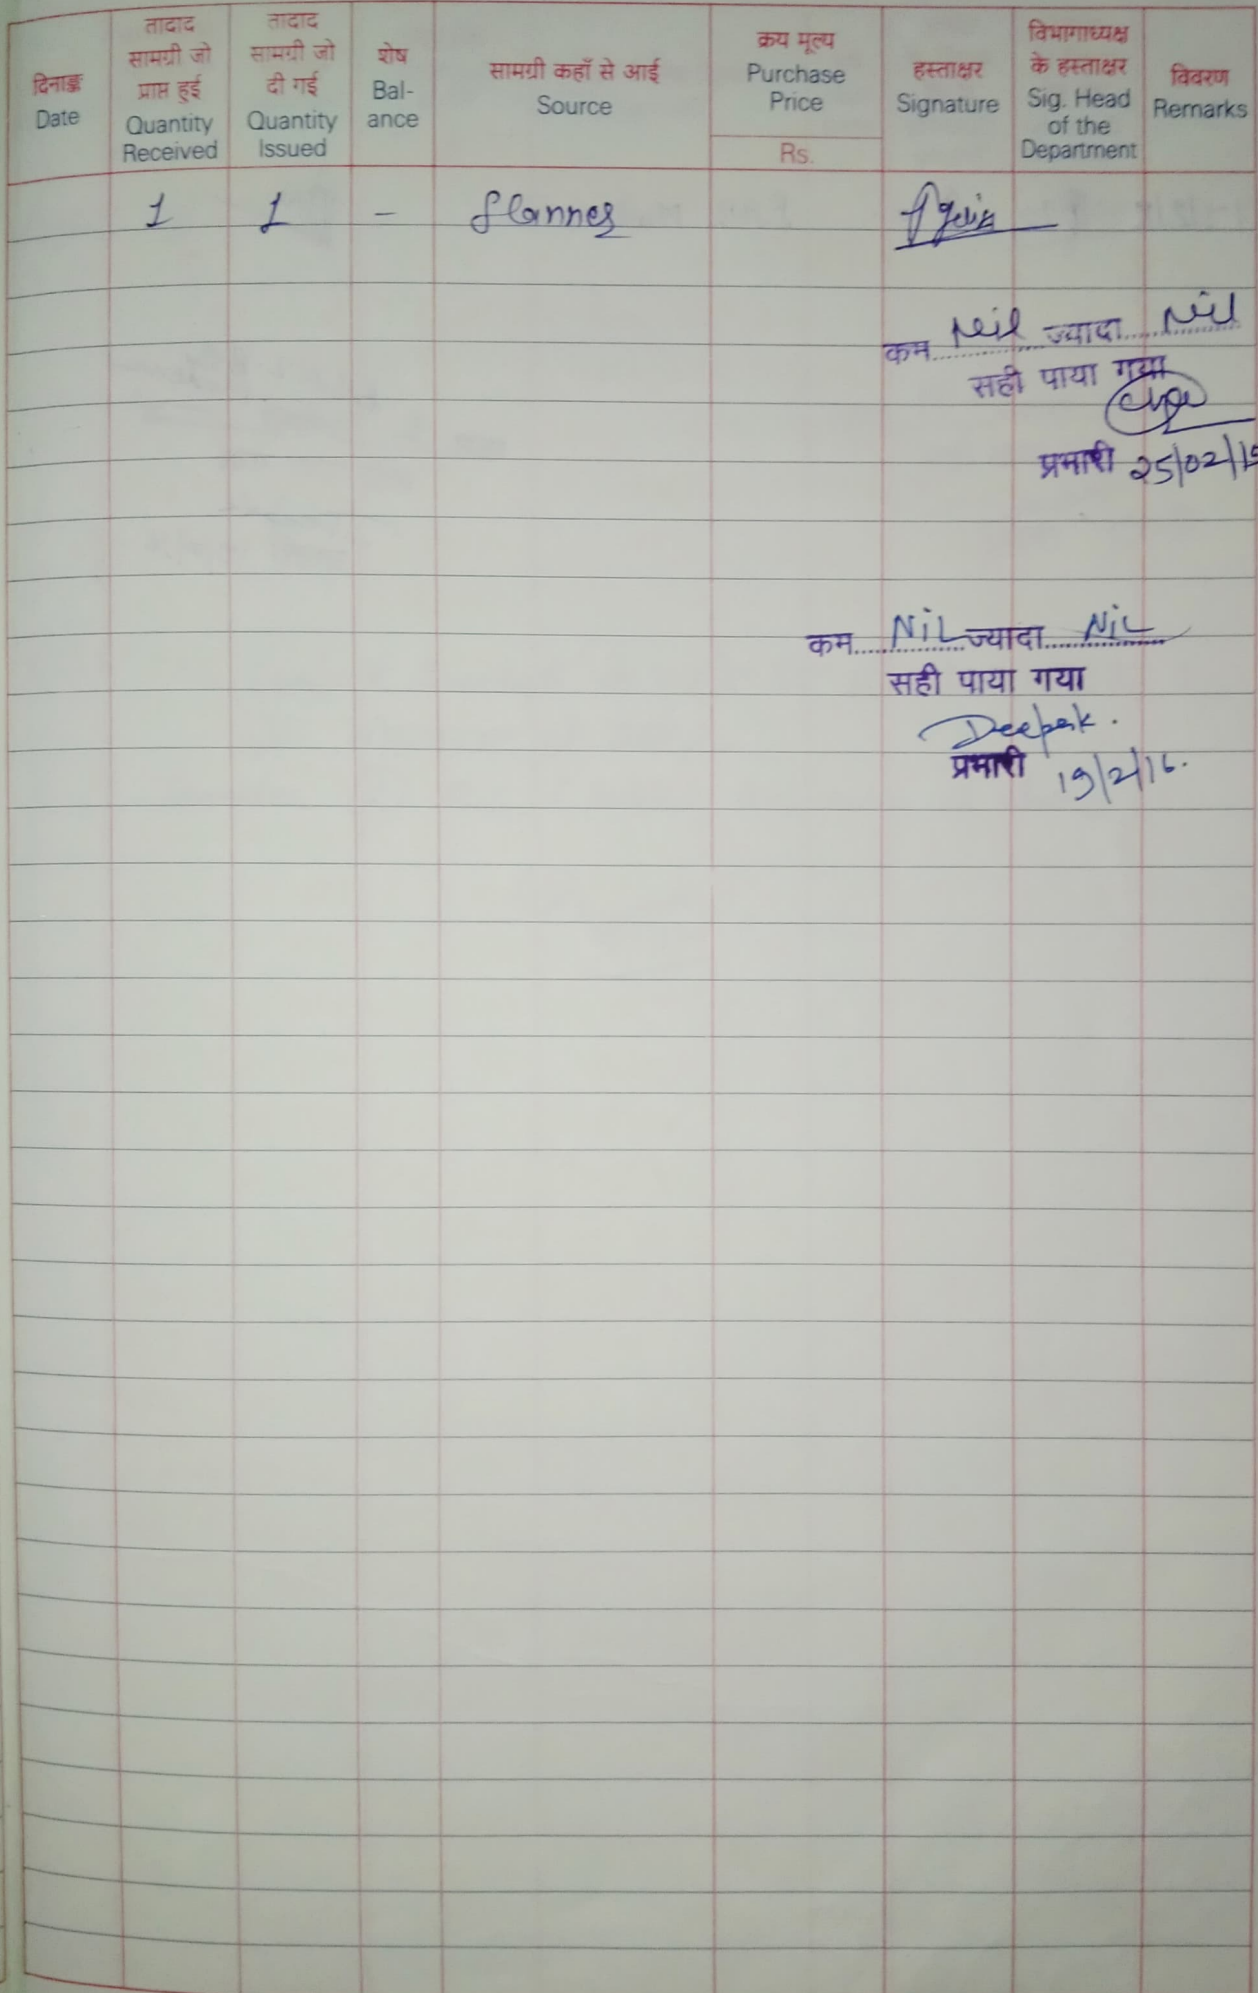 दिनाङ्क
Date
तादाद
सामग्री जो
प्राप्त हुई
Quantity
Received
तादाद
सामग्री जो
दी गई
Quantity
Issued
शेष
Bal-
ance
सामग्री कहाँ से आई
Source
क्रय मूल्य
Purchase
Price
Rs.
हस्ताक्षर
Signature
विभागाध्यक्ष
के हस्ताक्षर
Sig. Head
of the
Department
विवरण
Remarks
1 1 –
कम Nil ज्यादा Nil
सही पाया गया
प्रभारी 25/02/
कम NiL ज्यादा NiL
सही पाया गया
Deepak.
प्रभारी 19/2/16.